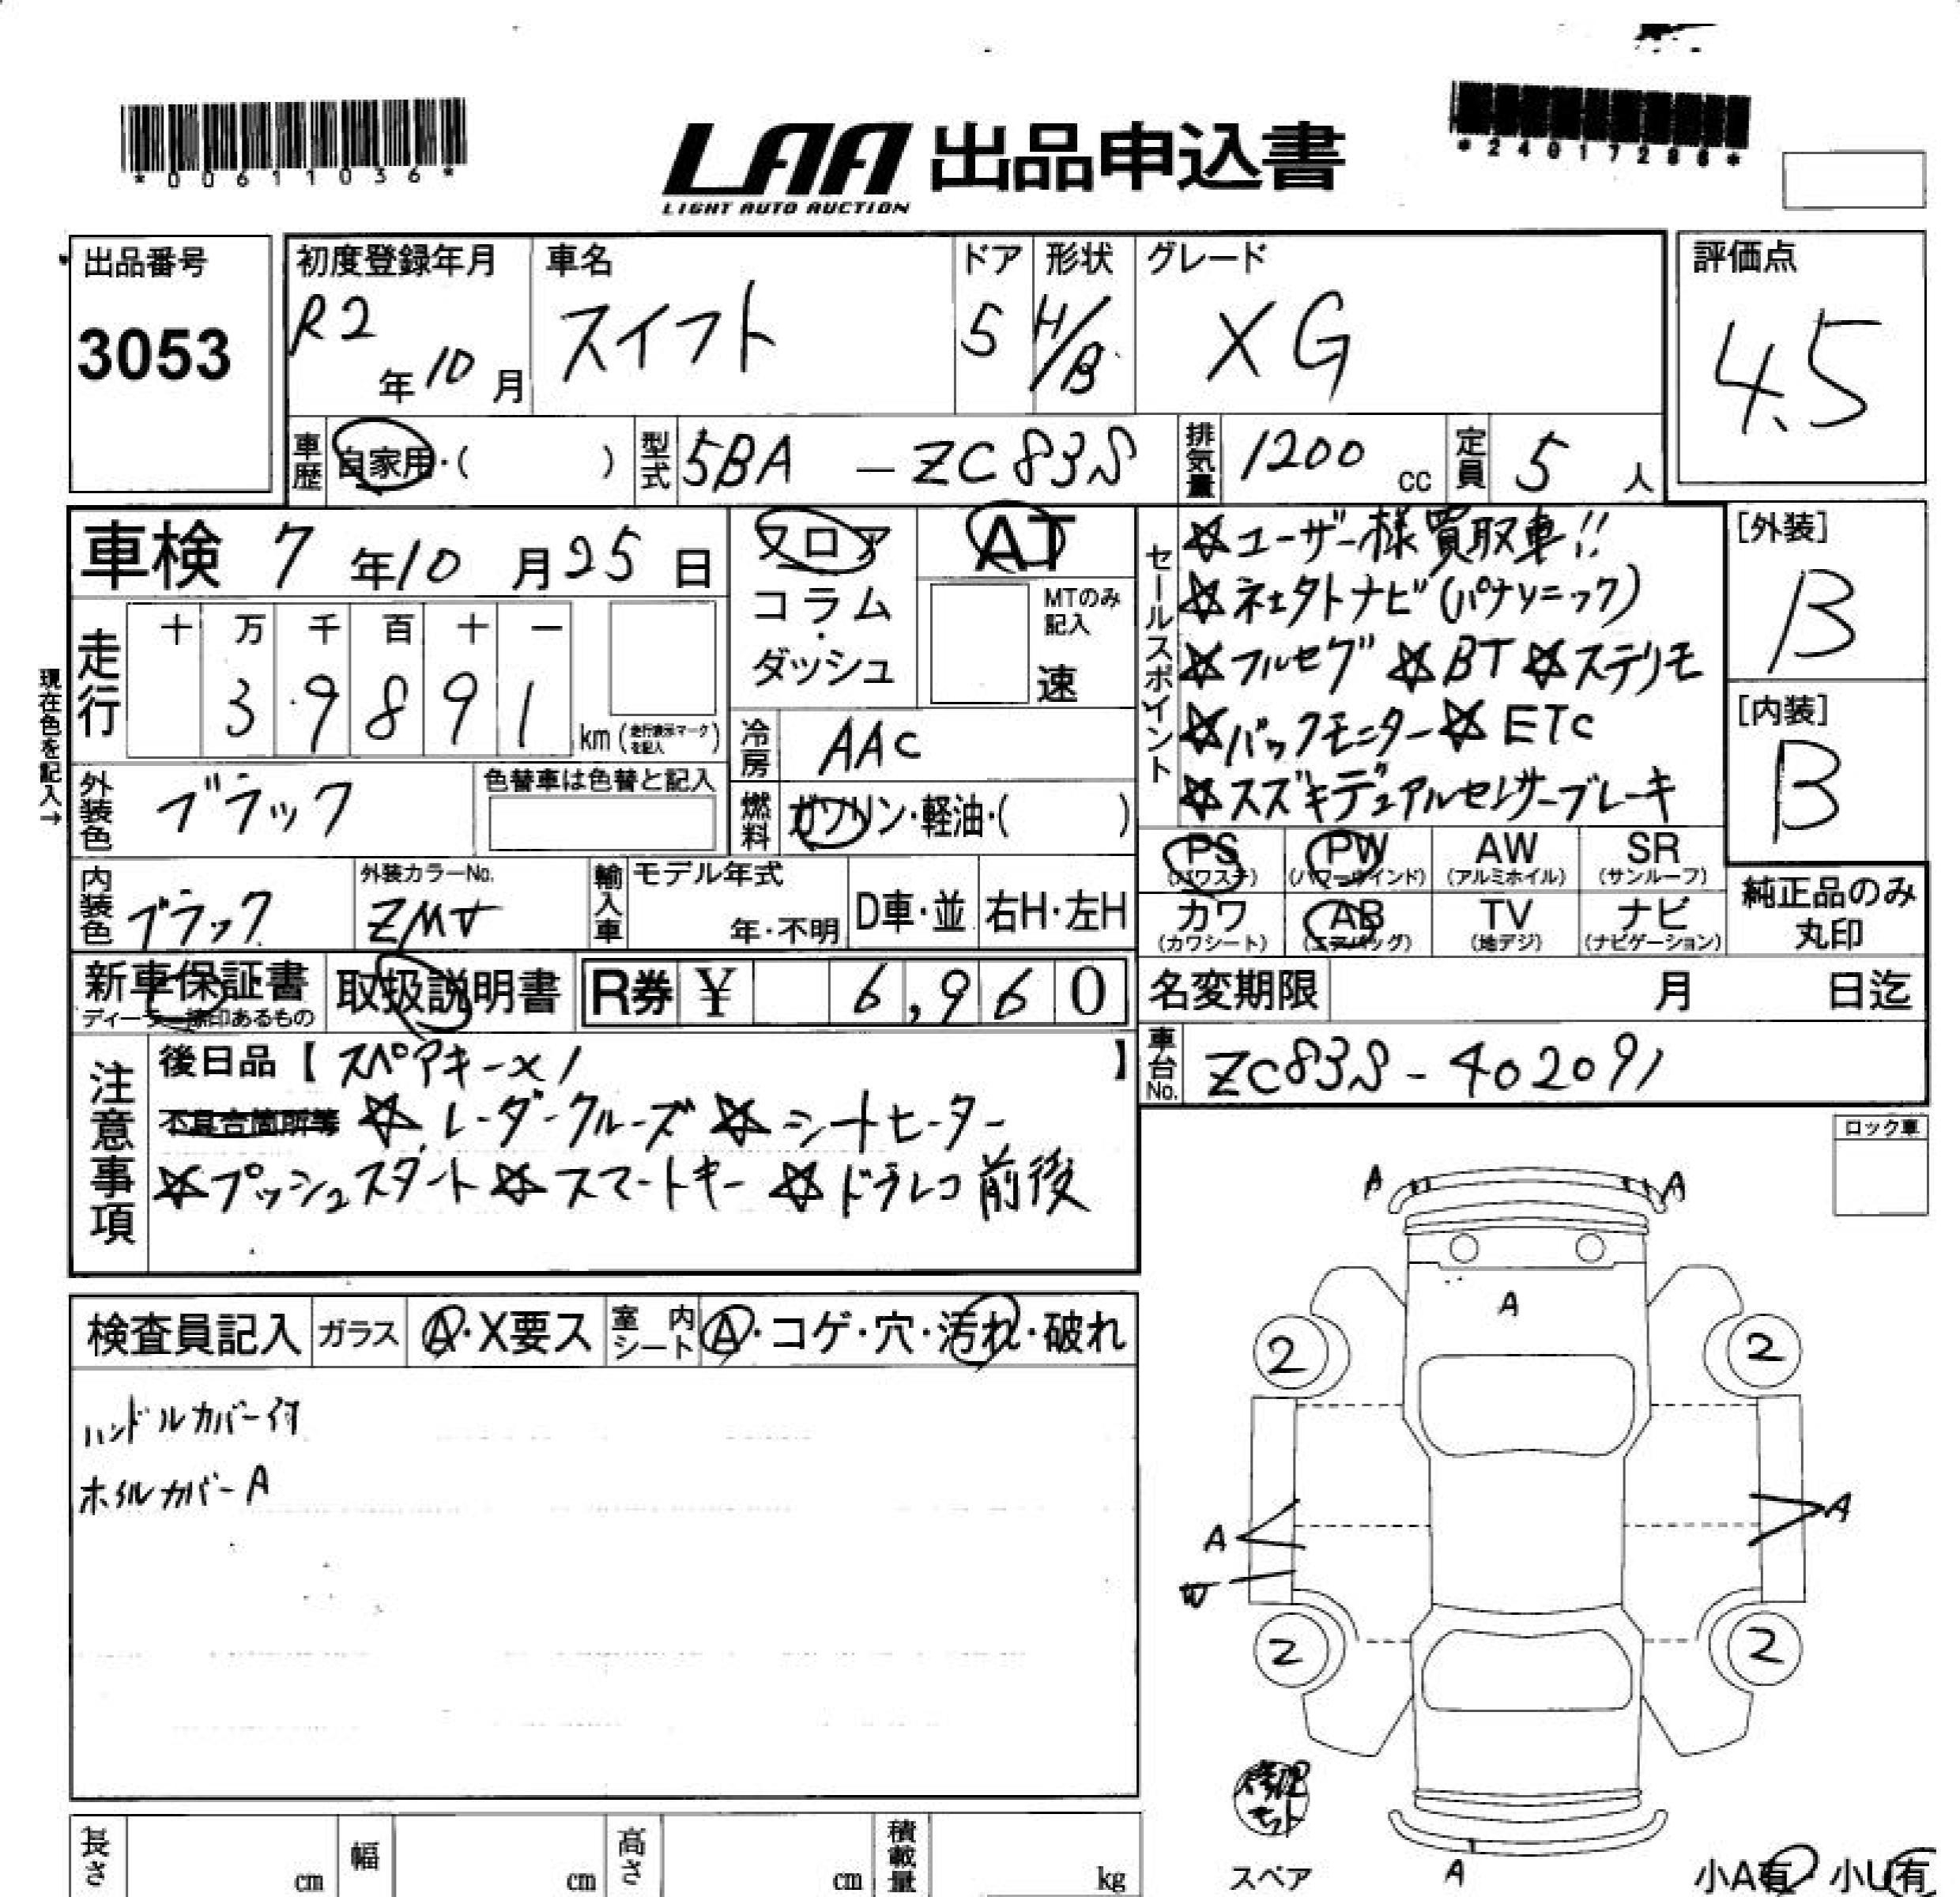 *00611036*
LAA 出品申込書
LIGHT AUTO AUCTION
*24017286*
出品番号
3053
初度登録年月
R2年10月
車名
スイフト
ドア
5
形状
H/B
グレード
XG
評価点
4.5
車歴 自家用・( )
型式 5BA - ZC83S
排気量 1200 cc
定員 5 人
車検 7年10月25日
走行
十 万 千 百 十 一
3 9 8 9 1 km (走行表示マークを記入)
現在色を記入→
フロア
コラム
・
ダッシュ
AT
MTのみ
記入
速
冷房 AAC
燃料 ガソリン・軽油・( )
外装色 ブラック
色替車は色替と記入
内装色 ブラック
外装カラーNo.
ZMV
輸入車
モデル年式
年・不明
D車・並
右H・左H
セールスポイント
☆ユーザー様買取車!!
☆ネェクトナビ(パナソニック)
☆フルセグ ☆BT ☆ステリモ
☆バックモニター ☆ETC
☆スズキデュアルセンサーブレーキ
[外装]
B
[内装]
B
PS (パワステ)
PW (パワーウインド)
AW (アルミホイル)
SR (サンルーフ)
カワ (カワシート)
AB (エアバッグ)
TV (地デジ)
ナビ (ナビゲーション)
純正品のみ
丸印
新車保証書
ディーラー捺印あるもの
取扱説明書
R券 ¥ 6,960
名変期限 月 日迄
車台No. ZC83S-402091
注意事項
後日品【スペアキー×1 】
不具合箇所等 ☆レーダークルーズ ☆シートヒーター
☆プッシュスタート ☆スマートキー ☆ドラレコ前後
ロック車
検査員記入
ガラス A・X要ス
室内シート A・コゲ・穴・汚れ・破れ
ハンドルカバー付
ホイルカバーA
A A
A
2 2
A A
W
2 2
修理
キット
スペア
A
小A有・小U有
長さ cm
幅 cm
高さ cm
積載量 kg